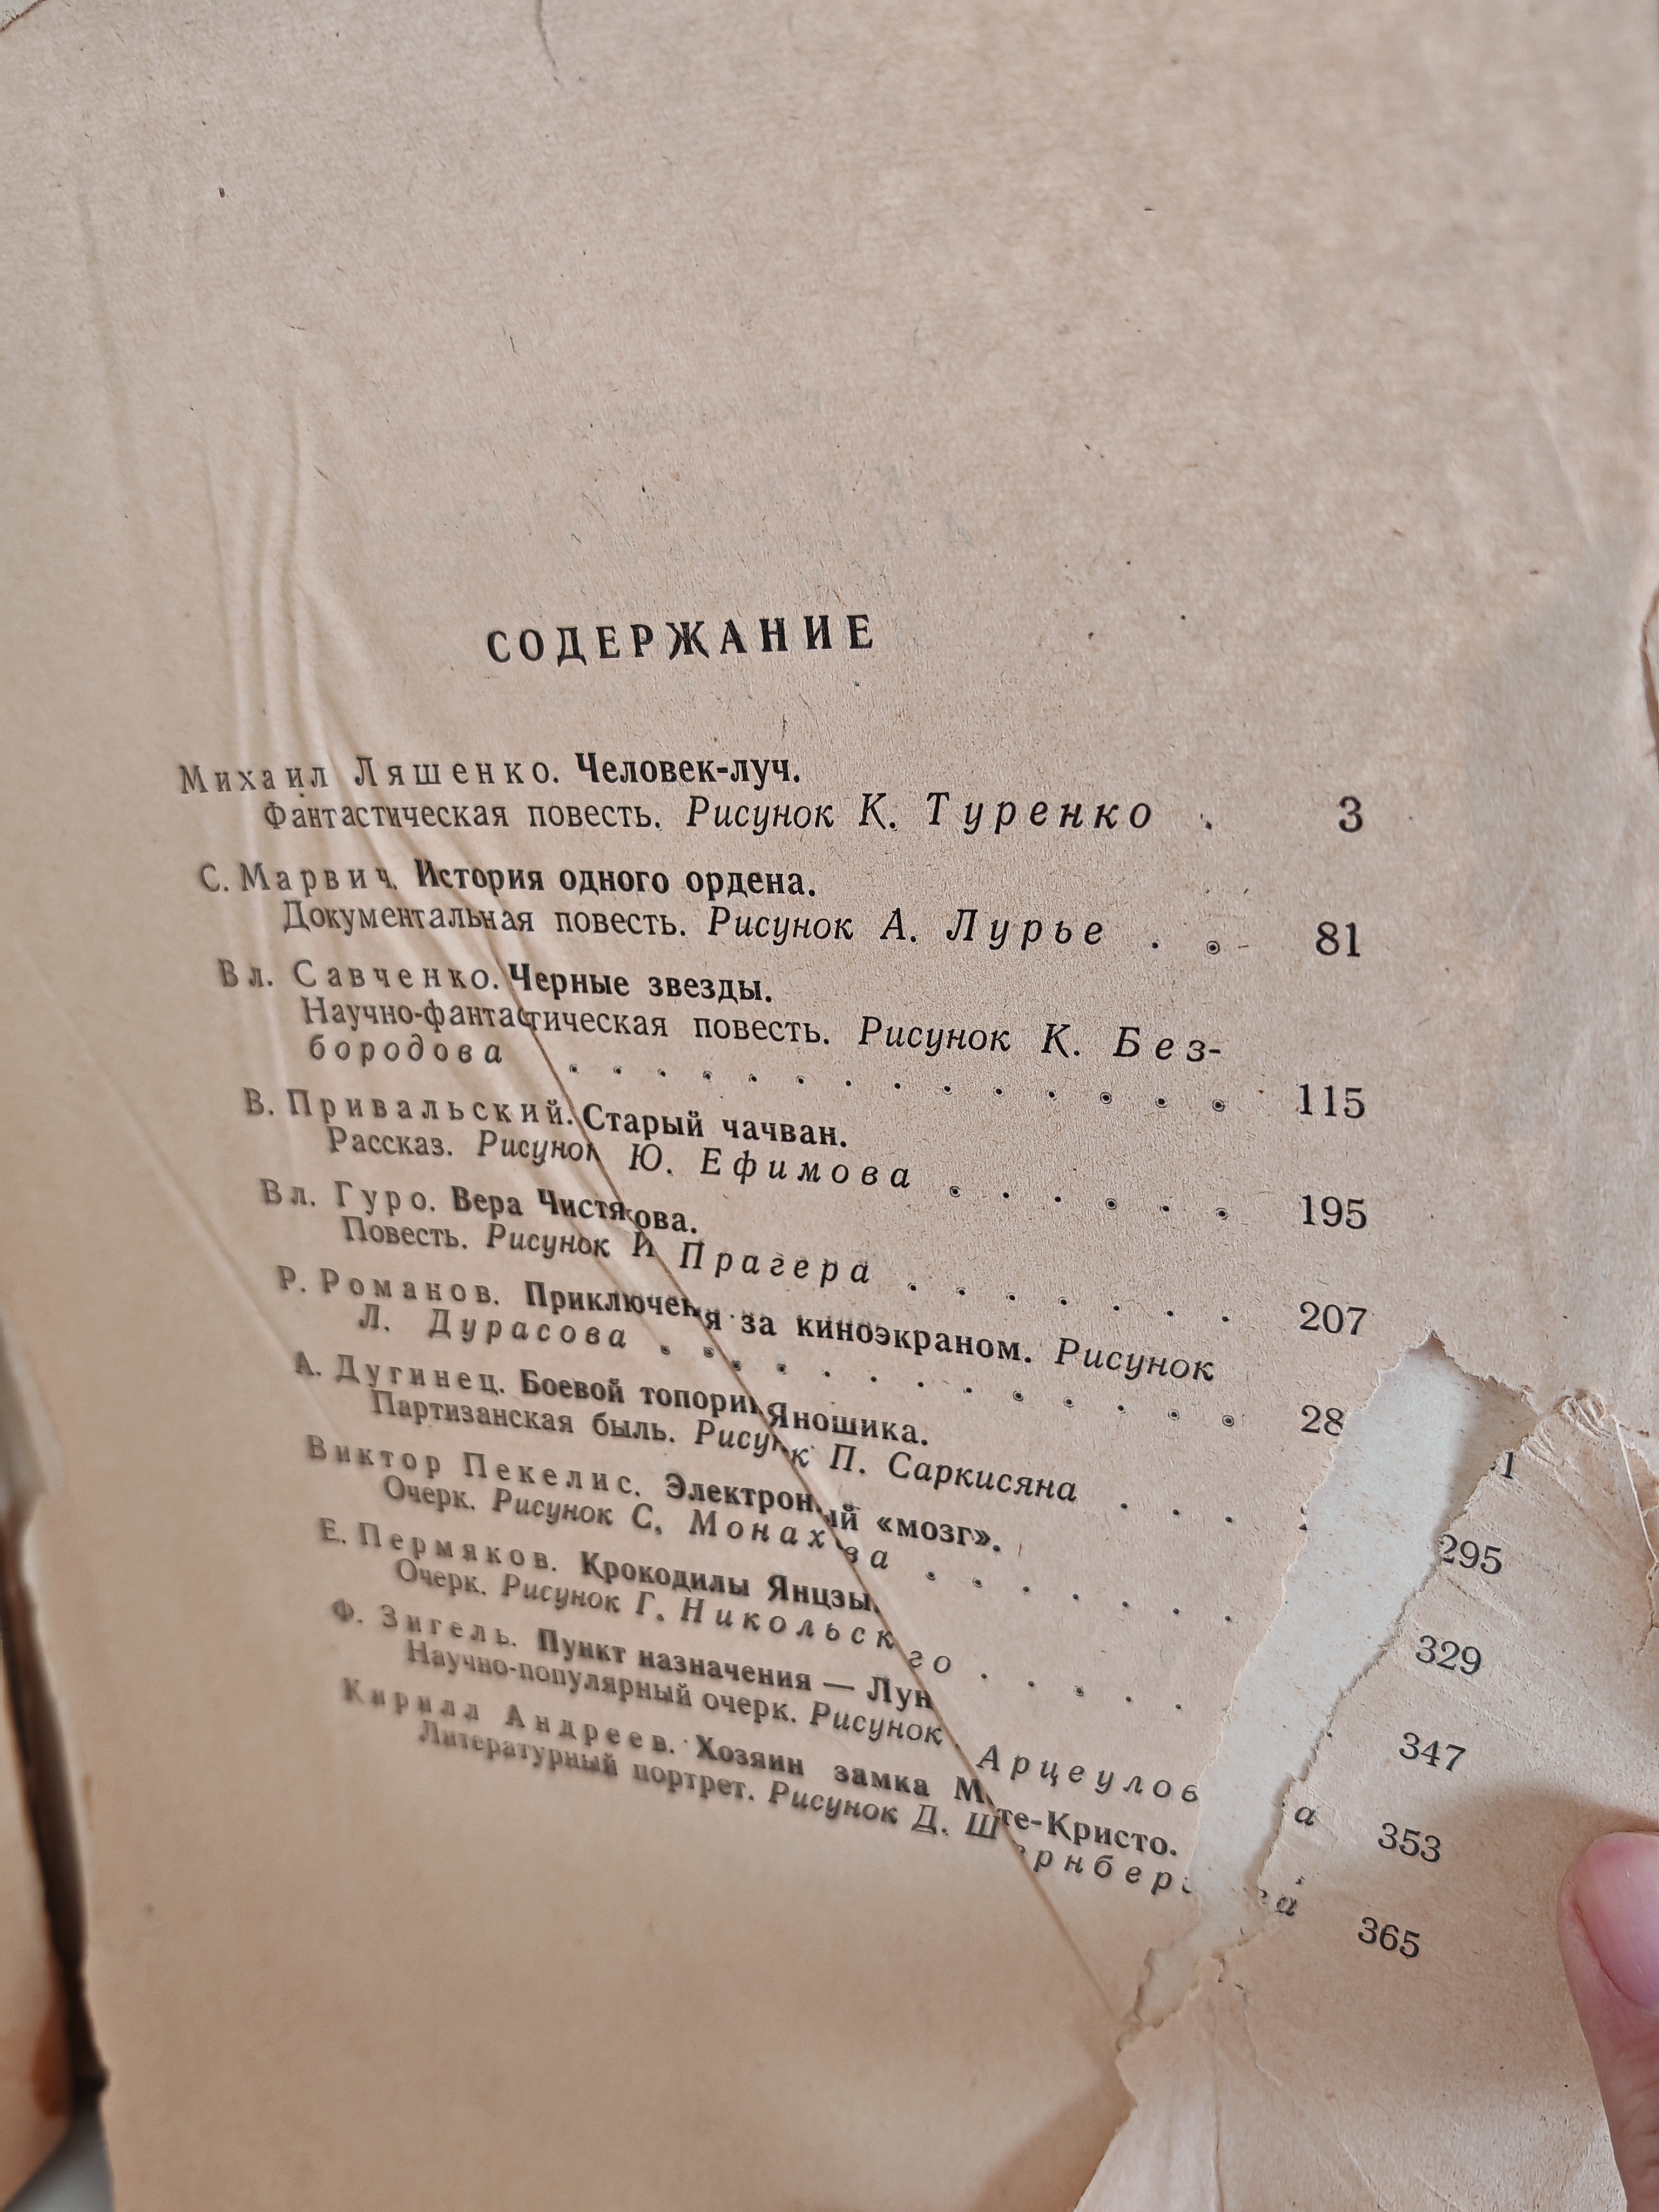 СОДЕРЖАНИЕ
Михаил Ляшенко. Человек-луч.
Фантастическая повесть. Рисунок К. Туренко . 3
С. Марвич. История одного ордена.
Документальная повесть. Рисунок А. Лурье . . 81
Вл. Савченко. Черные звезды.
Научно-фантастическая повесть. Рисунок К. Без-
бородова . . . . . . . . . . . . . . 115
В. Привальский. Старый чачван.
Рассказ. Рисунок Ю. Ефимова . . . . . . 195
Вл. Гуро. Вера Чистякова.
Повесть. Рисунок И Прагера . . . . . . . 207
Р. Романов. Приключения за киноэкраном. Рисунок
Л. Дурасова . . . . . . . . . . . . 28 1
А. Дугинец. Боевой топорик Яношика.
Партизанская быль. Рисунок П. Саркисяна . . . 295
Виктор Пекелис. Электронный «мозг».
Очерк. Рисунок С. Монахова . . . . . . . 329
Е. Пермяков. Крокодилы Янцзы.
Очерк. Рисунок Г. Никольского . . . . . 347
Ф. Зигель. Пункт назначения — Лун
Научно-популярный очерк. Рисунок Арцеулова 353
Кирилл Андреев. Хозяин замка Монте-Кристо.
Литературный портрет. Рисунок Д. Штернберга 365